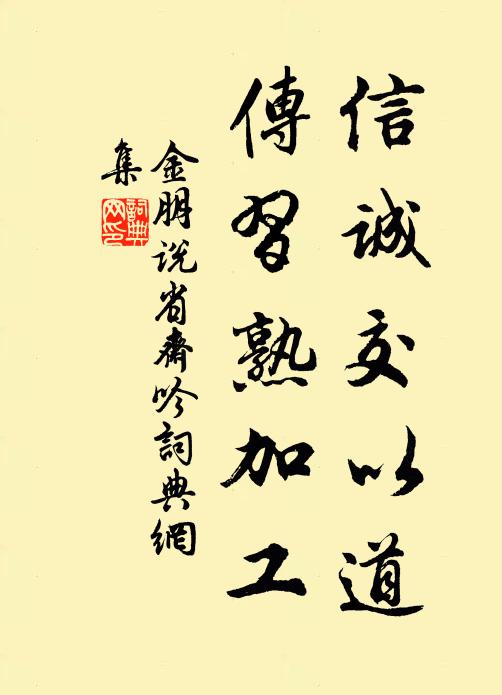 信誠交以道
傳習熟加工
金朋说省齋吟詞典網
集
詞典
网印